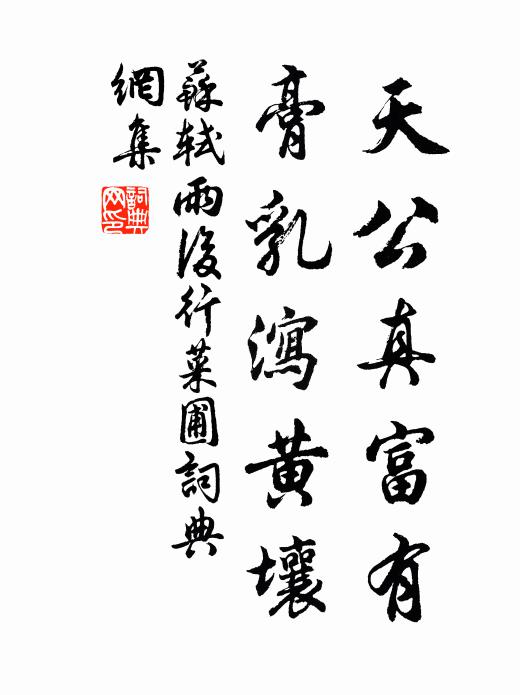 天公真富有
膏乳瀉黄壤
蘇軾雨後行菜圃詞典
網集
詞典
网印